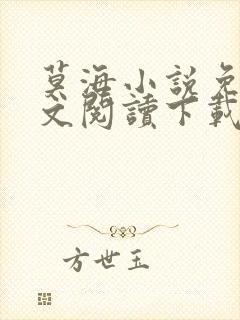 莫海小說免
文閱讀下載
方世玉